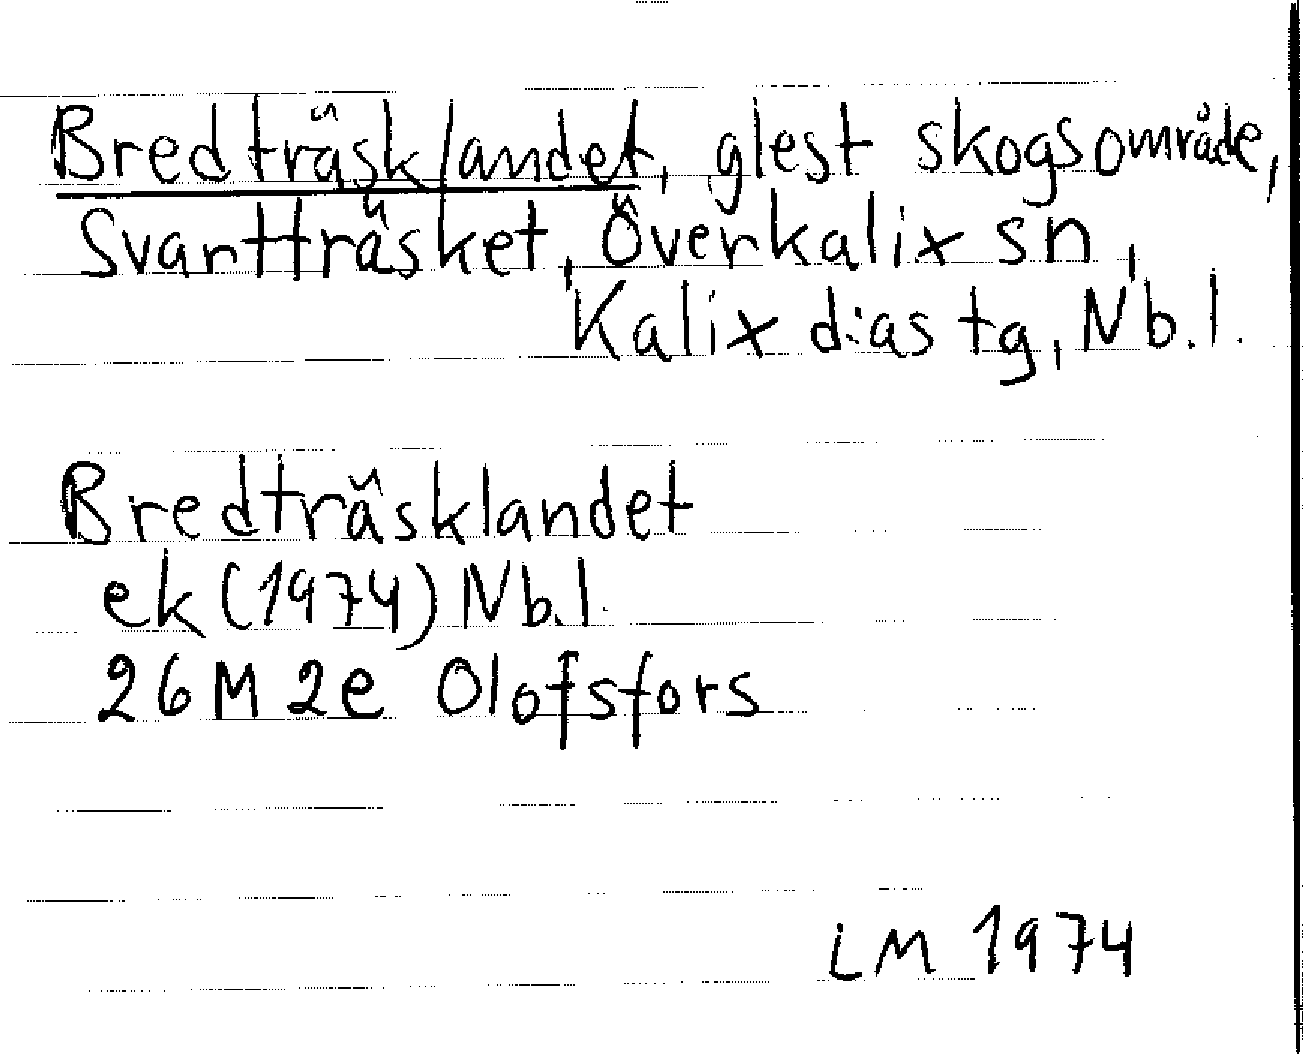 Bredträsklandet, glest skogsområde,
Svartträsket, Överkalix sn,
Kalix d:as tg, Nb.l.
Bredträsklandet
ek (1974) Nb.l.
26 M 2e Olofsfors
LM 1974